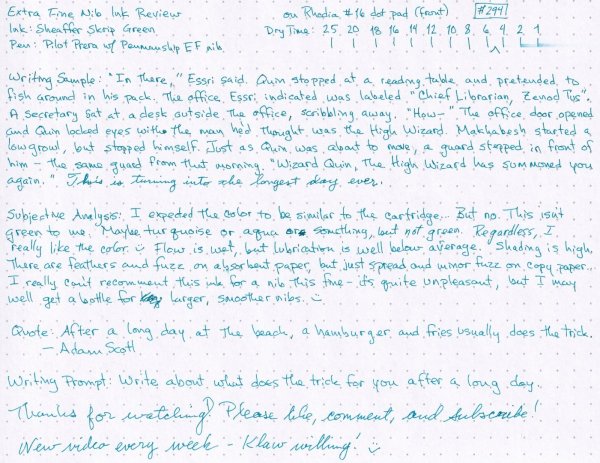 Extra Fine Nib Ink Review on Rhodia #16 dot pad (front) #294
Ink: Sheaffer Skrip Green Dry Time: 25 20 18 16 14 12 10 8 6 4 2 1
Pen: Pilot Prera w/ Penmanship EF nib
Writing Sample: "In there," Essri said. Quin stopped at a reading table and pretended to
fish around in his pack. The office Essri indicated was labeled "Chief Librarian, Zenod Tus".
A secretary sat at a desk outside the office, scribbling away. "How-" The office door opened
and Quin locked eyes with the man he'd thought was the High Wizard. Makhabesh started a
low growl, but stopped himself. Just as Quin was about to move, a guard stepped in front of
him – the same guard from that morning. "Wizard Quin, The High Wizard has summoned you
again." This is turning into the longest day ever.
Subjective Analysis: I expected the color to be similar to the cartridge... But no. This isn't
green to me. Maybe turquoise or aqua or something, but not green. Regardless, I
really like the color. Flow is wet, but lubrication is well below average. Shading is high.
There are feathers and fuzz on absorbent paper, but just spread and minor fuzz on copy paper...
I really can't recomment this ink for a nib this fine - it's quite unpleasant, but I may
well get a bottle for larger, smoother nibs.
Quote: After a long day at the beach, a hamburger and fries usually does the trick.
– Adam Scott
Writing Prompt: Write about what does the trick for you after a long day.
Thanks for watching! Please like, comment, and subscribe!
New video every week – Klaw willing!